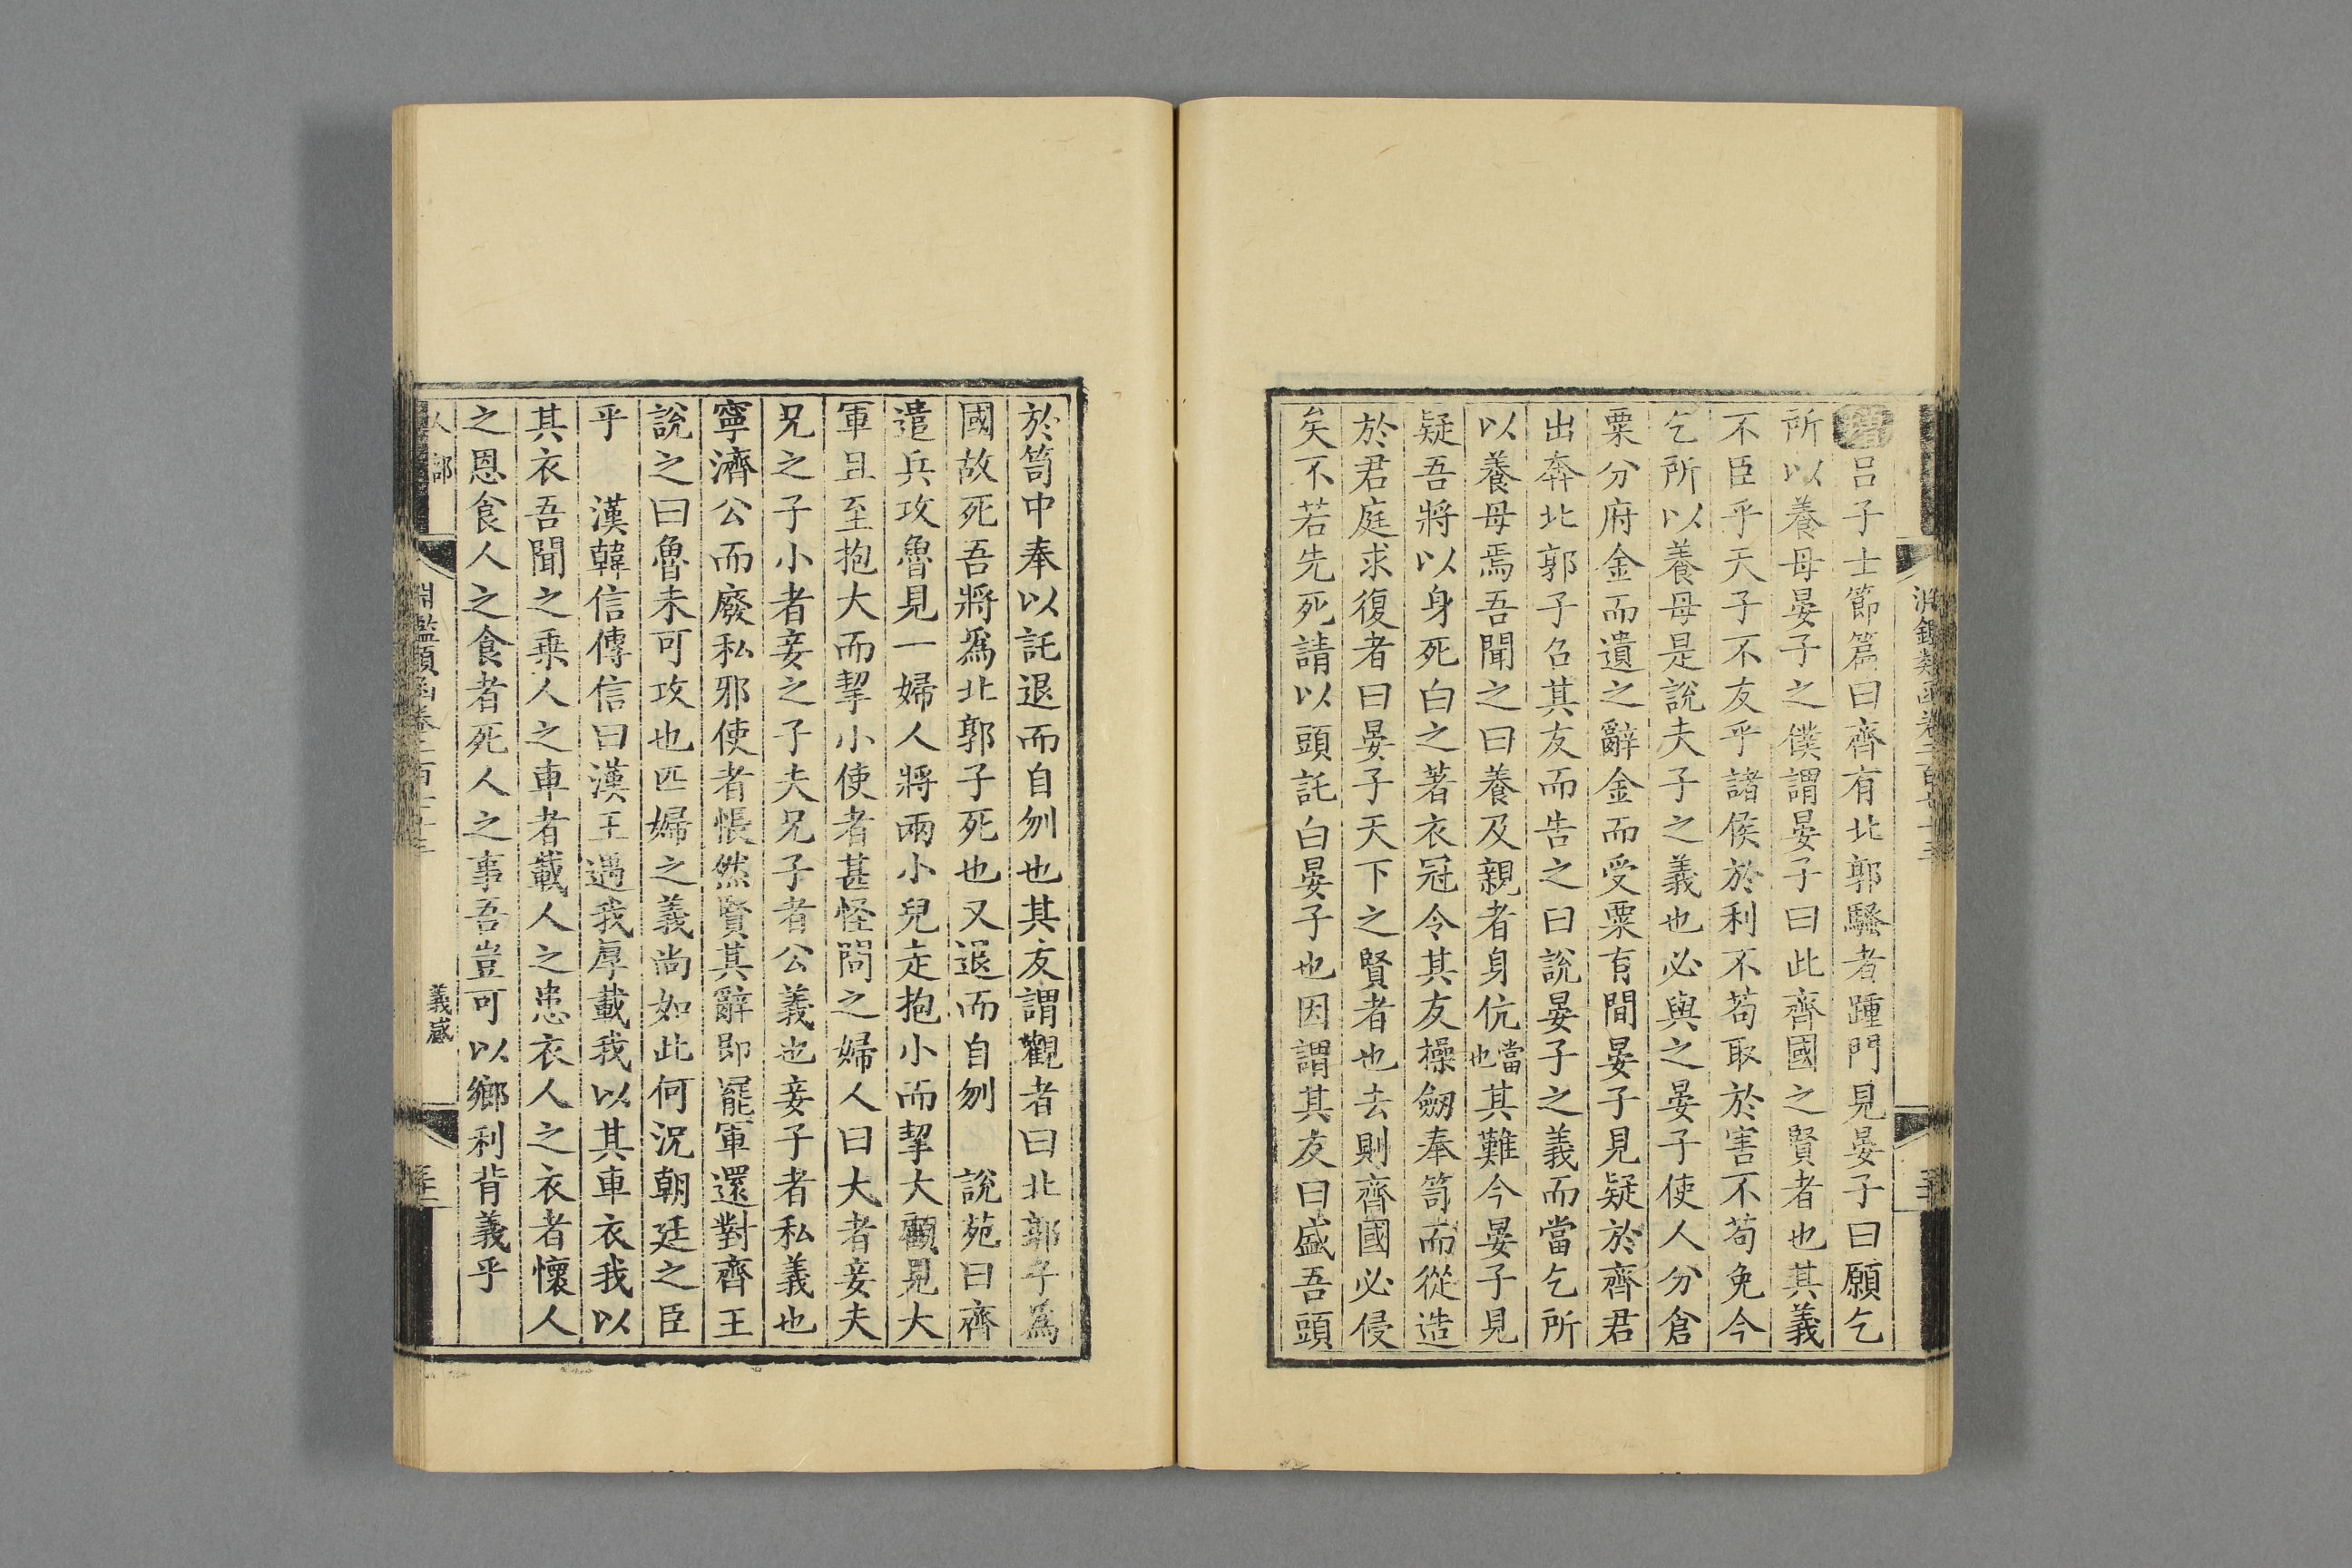 增呂子士節篇曰齊有北郭騷者踵門見晏子曰願乞
所以養母晏子之僕謂晏子曰此齊國之賢者也其義
不臣乎天子不友乎諸侯於利不苟取於害不苟免今
乞所以養母是說夫子之義也必與之晏子使人分倉
粟分府金而遺之辭金而受粟有間晏子見疑於齊君
出奔北郭子召其友而告之曰說晏子之義而當乞所
以養母焉吾聞之曰養及親者身伉當也其難今晏子見
疑吾將以身死白之著衣冠令其友操劒奉笥而從造
於君庭求復者曰晏子天下之賢者也去則齊國必侵
矣不若先死請以頭託白晏子也因謂其友曰盛吾頭
於笥中奉以託退而自刎也其友謂觀者曰北郭子爲
國故死吾將爲北郭子死也又退而自刎 說苑曰齊
遣兵攻魯見一婦人將兩小兒走抱小而挈大顧見大
軍且至抱大而挈小使者甚怪問之婦人曰大者妾夫
兄之子小者妾之子夫兄子者公義也妾子者私義也
寧濟公而廢私邪使者悵然賢其辭即罷軍還對齊王
說之曰魯未可攻也匹婦之義尚如此何況朝廷之臣
乎 漢韓信傳信曰漢王遇我厚載我以其車衣我以
其衣吾聞之乗人之車者載人之患衣人之衣者懷人
之恩食人之食者死人之事吾豈可以鄉利背義乎
人部 淵鑑類函卷二百 義感